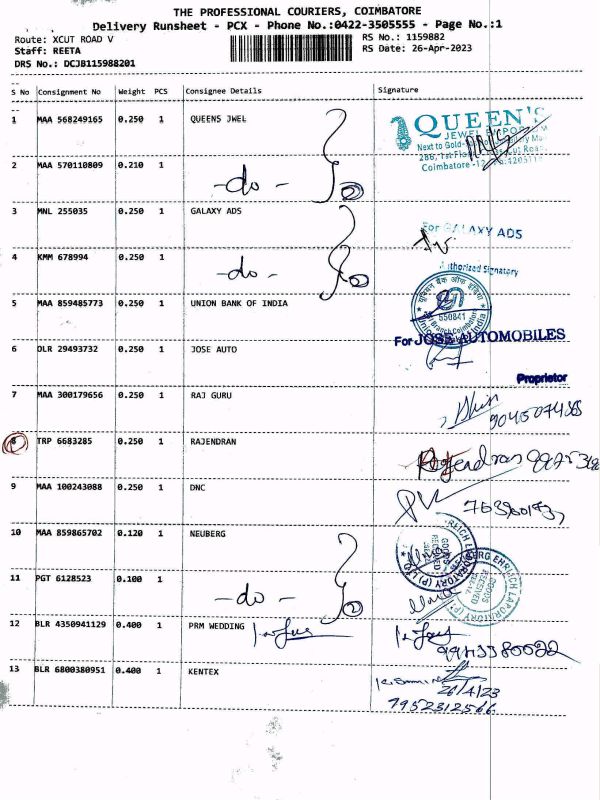 THE PROFESSIONAL COURIERS, COIMBATORE
Delivery Runsheet - PCX - Phone No.:0422-3505555 - Page No.:1
Route: XCUT ROAD V
RS No.: 1159882
Staff: REETA
RS Date: 26-Apr-2023
DRS No.: DCJB115988201
S No Consignment No Weight PCS Consignee Details Signature
1 MAA 568249165 0.250 1 QUEENS JWEL
QUEEN'S
JEWEL EMPORIUM
Coimbatore
2 MAA 570110809 0.210 1 -do- 2
3 MNL 255035 0.250 1 GALAXY ADS
For GALAXY ADS
4 KMM 678994 0.250 1 -do- 2
Authorised Signatory
5 MAA 859485773 0.250 1 UNION BANK OF INDIA
550841
For JOSE AUTOMOBILES
6 DLR 29493732 0.250 1 JOSE AUTO
Proprietor
7 MAA 300179656 0.250 1 RAJ GURU
8 TRP 6683285 0.250 1 RAJENDRAN Rajendran
9 MAA 100243088 0.250 1 DNC
10 MAA 859865702 0.120 1 NEUBERG
11 PGT 6128523 0.100 1 -do- 2
12 BLR 4350941129 0.400 1 PRM WEDDING
13 BLR 6800380951 0.400 1 KENTEX
26/4/23
7952312566